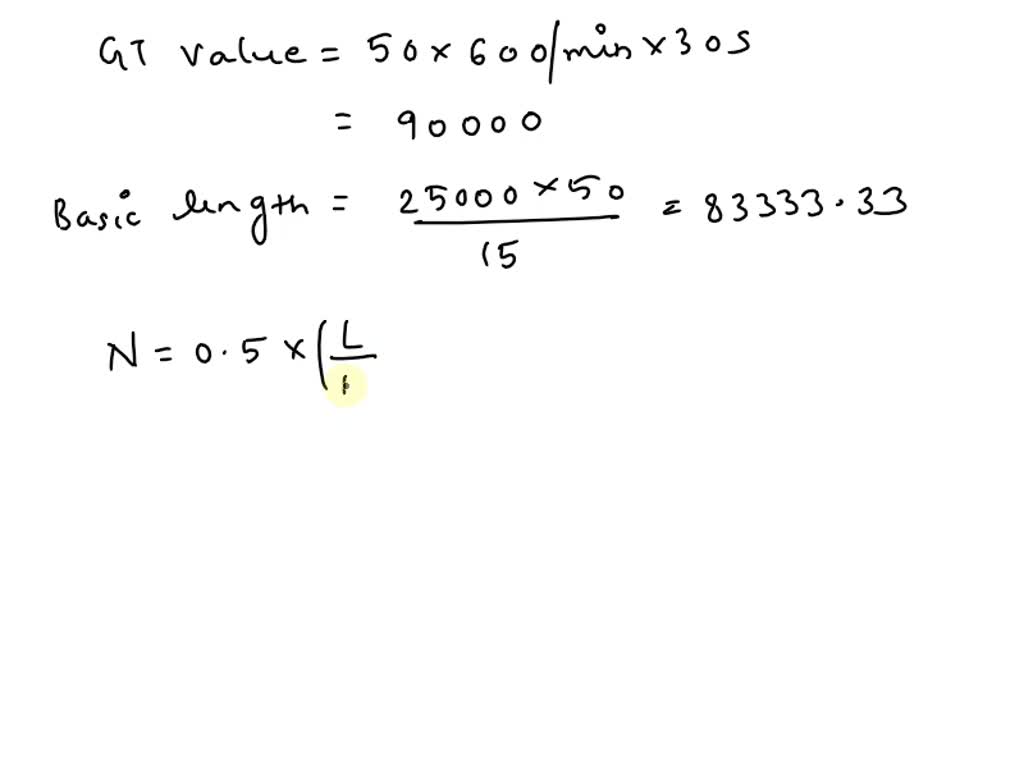 GT value = 50 × 600/min × 30s
= 90000
Basic length = 25000 × 50 / 15 = 83333.33
N = 0.5 × ( L /